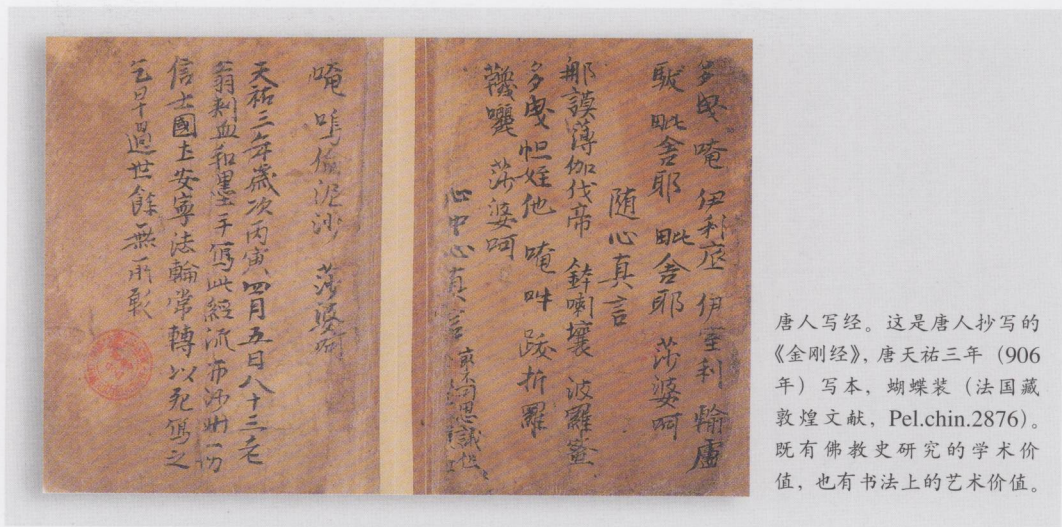 多曳 唵 伊利底 伊室利 輸盧
馱 毗舍耶 毗舍耶 莎婆呵
随心真言
那謨薄伽伐帝 鉢喇壤 波羅蜜
多曳 怛姪他 唵 吽 跋折羅
莎婆呵
心中心真言
唵 嗚倫泥沙 莎婆呵
天祐三年歲次丙寅四月五日八十三老
翁刺血和墨手寫此經流布沙州一切
信士國土安寧法輪常轉以死寫之
乞早過世餘無所願
唐人写经。这是唐人抄写的
《金刚经》，唐天祐三年（906
年）写本，蝴蝶装（法国藏
敦煌文献，Pel.chin.2876）。
既有佛教史研究的学术价
值，也有书法上的艺术价值。